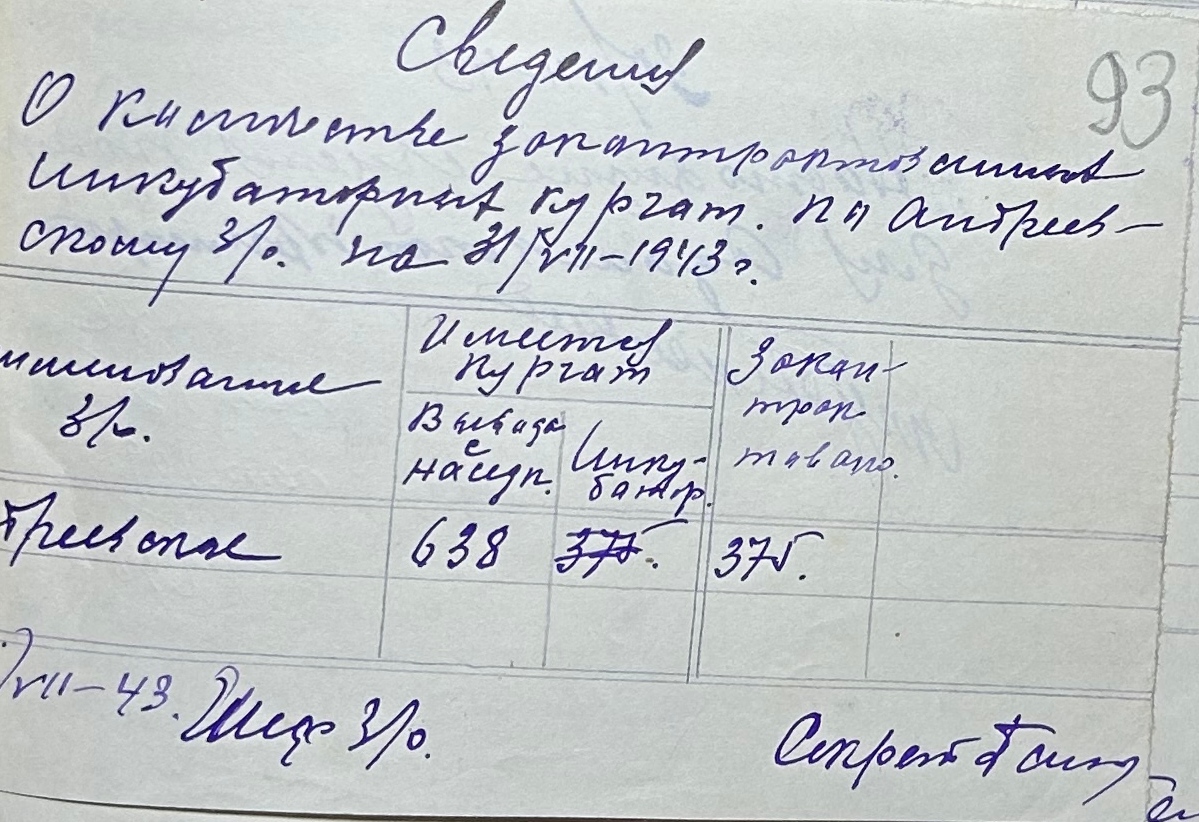 Сведения
93
О количестве законтрактованных
инкубаторных курчат. по Андреев-
скому З/о. на 31/VII-1943 г.
именование
З/о.
Имеется
курчат
Вывида
с
насидк.
Инку-
батор.
Закан-
трак
тавано.
дреевское
638
375.
375.
/VII-43. Шеф З/о.
Секрет